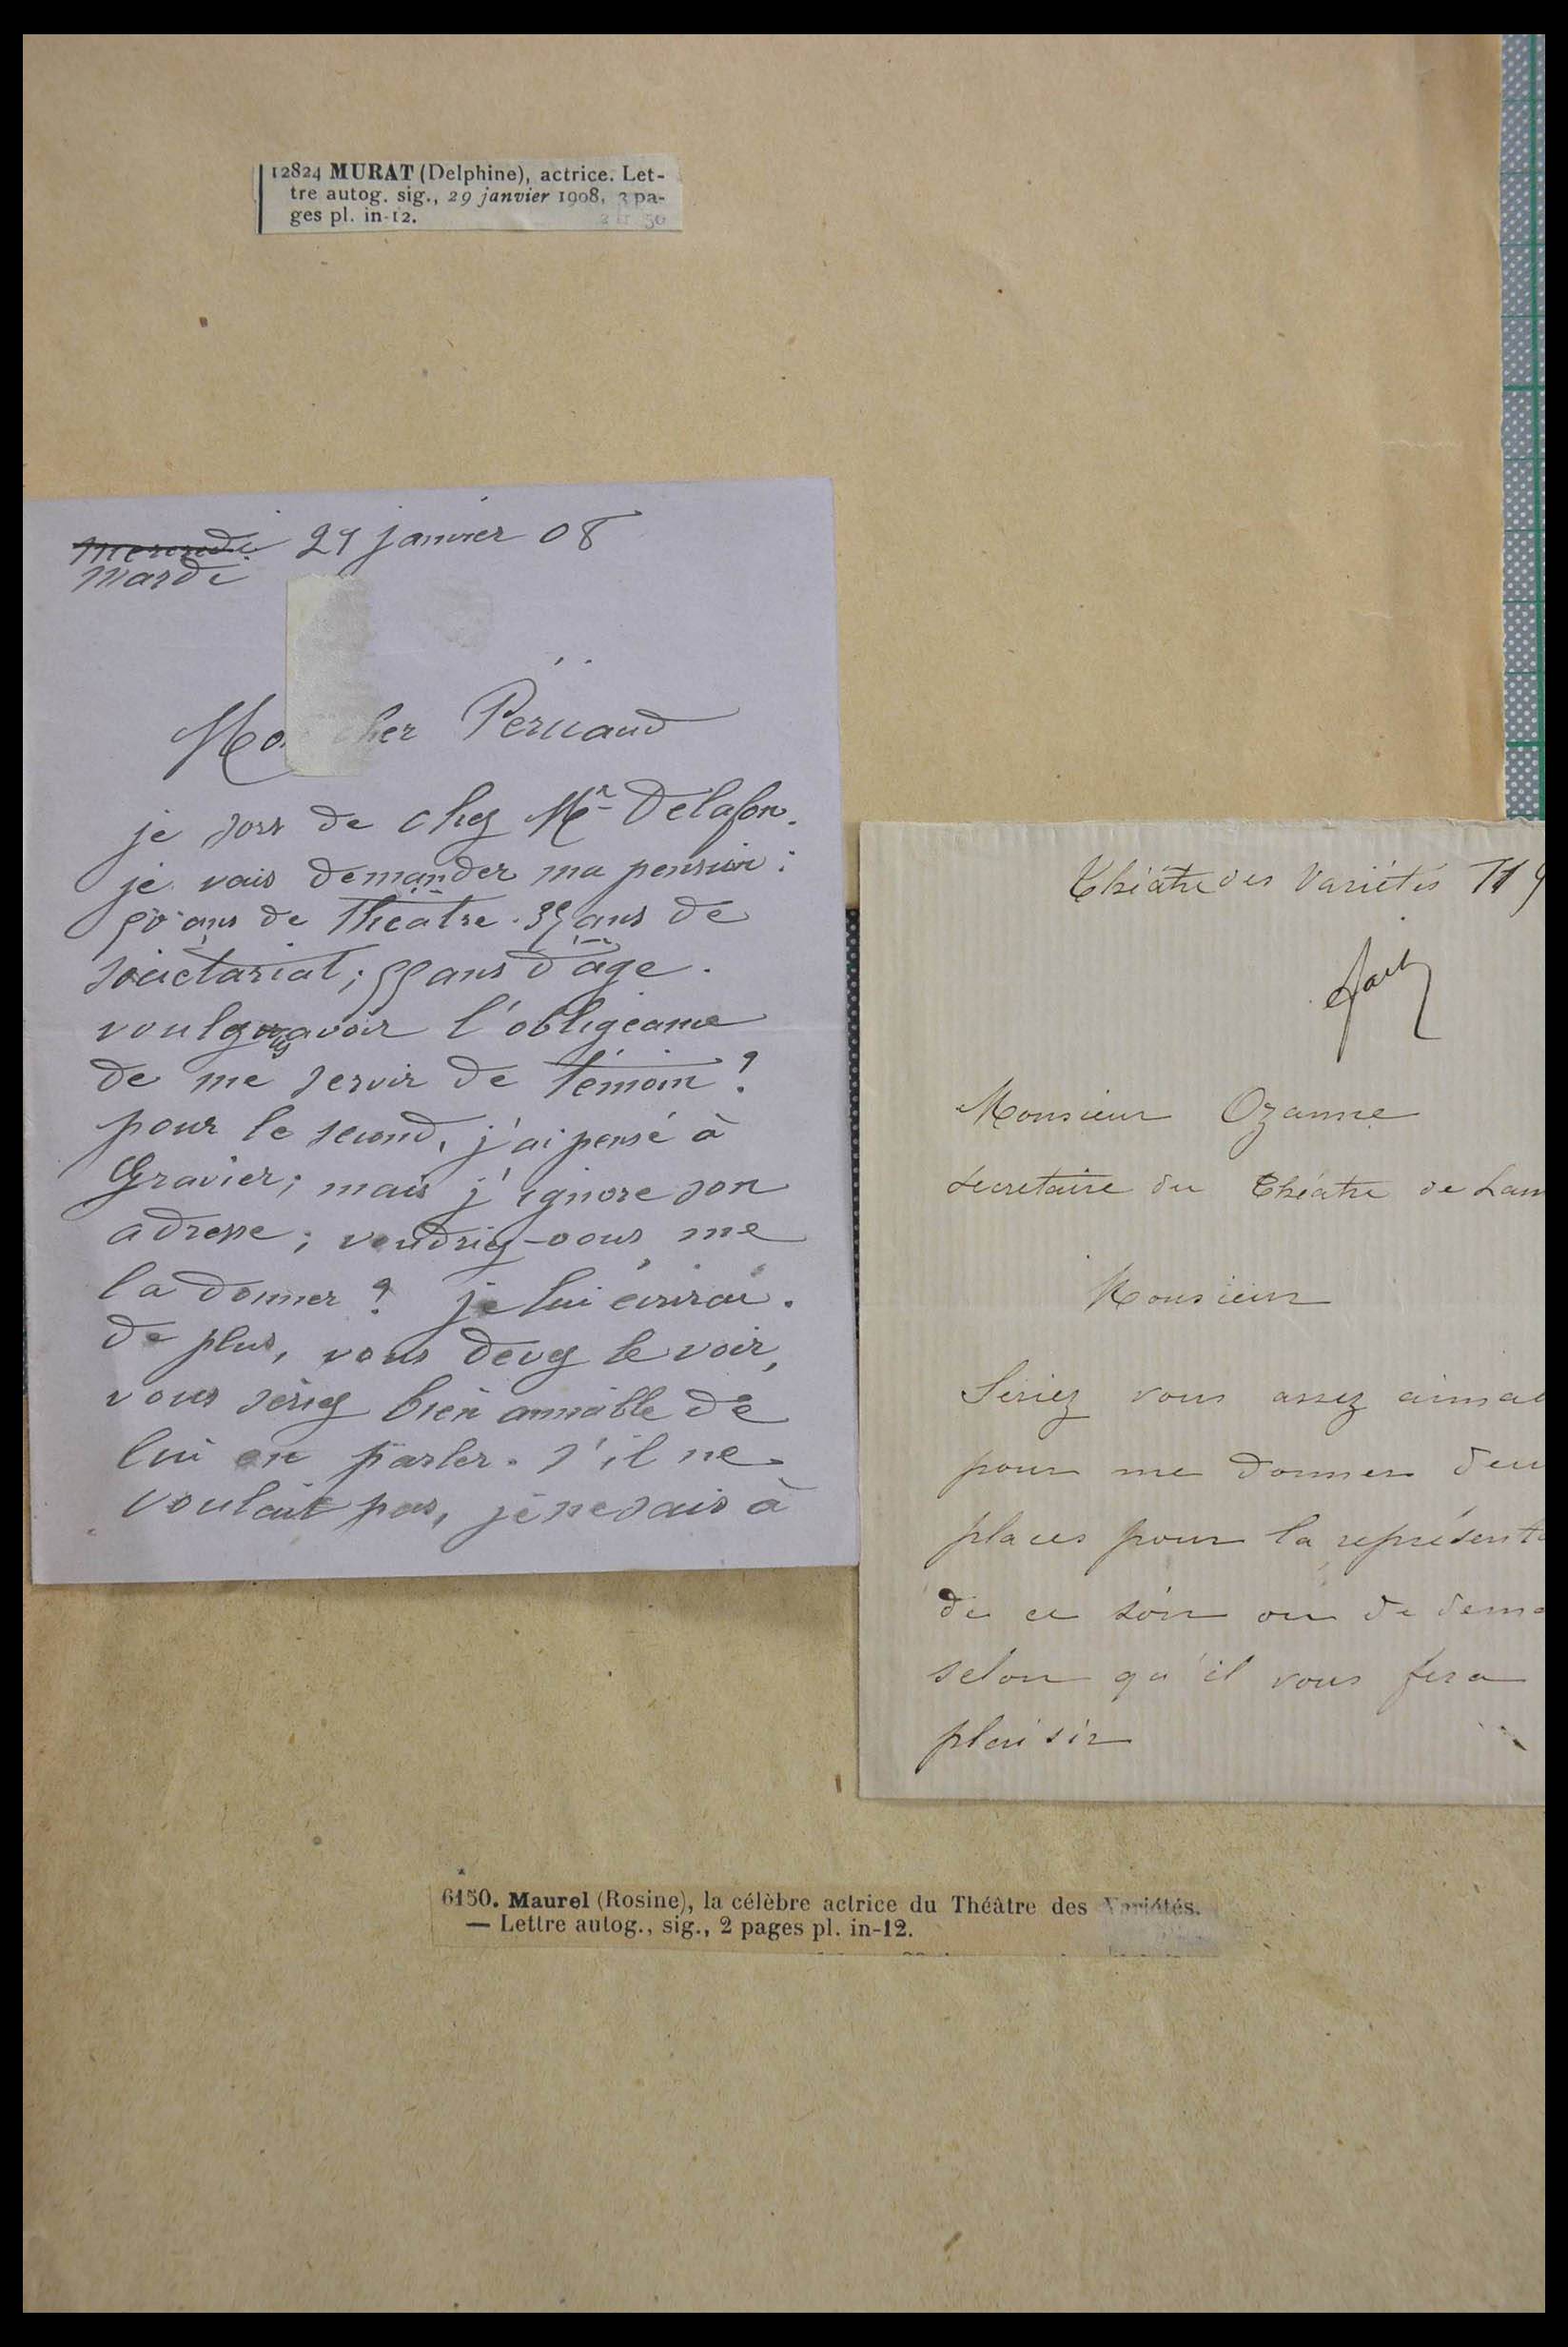 12824 MURAT (Delphine), actrice. Let-
tre autog. sig., 29 janvier 1908, 3 pa-
ges pl. in-12. 2 fr. 50
mercredi 29 janvier 08
mardi
Mon cher Péricaud
je sors de chez Mr Delafon.
je vais demander ma pension :
50 ans de Théâtre. 35 ans de
sociétariat ; 55 ans d'âge.
voulez vous avoir l'obligeance
de me servir de témoin ?
pour le second, j'ai pensé à
Gravier ; mais j'ignore son
adresse ; voudriez-vous me
la donner ? je lui écrirai.
De plus, vous devez le voir,
vous seriez bien aimable de
lui en parler. s'il ne
voulait pas, je ne sais à
Théâtre des Variétés
Monsieur Ozanne
secretaire du Théatre de Lam
Monsieur
Seriez vous assez aimab
pour me donner deu
places pour la représenta
de ce soir ou de dema
selon qu'il vous fera
plaisir
6150. Maurel (Rosine), la célèbre actrice du Théâtre des Variétés.
— Lettre autog., sig., 2 pages pl. in-12.